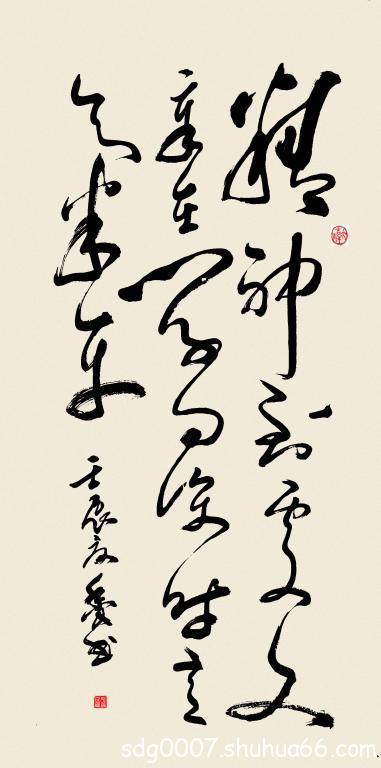 精神到处文
章老学问深时意
气平
壬辰夏
书
sdg0007.shuhua66.com